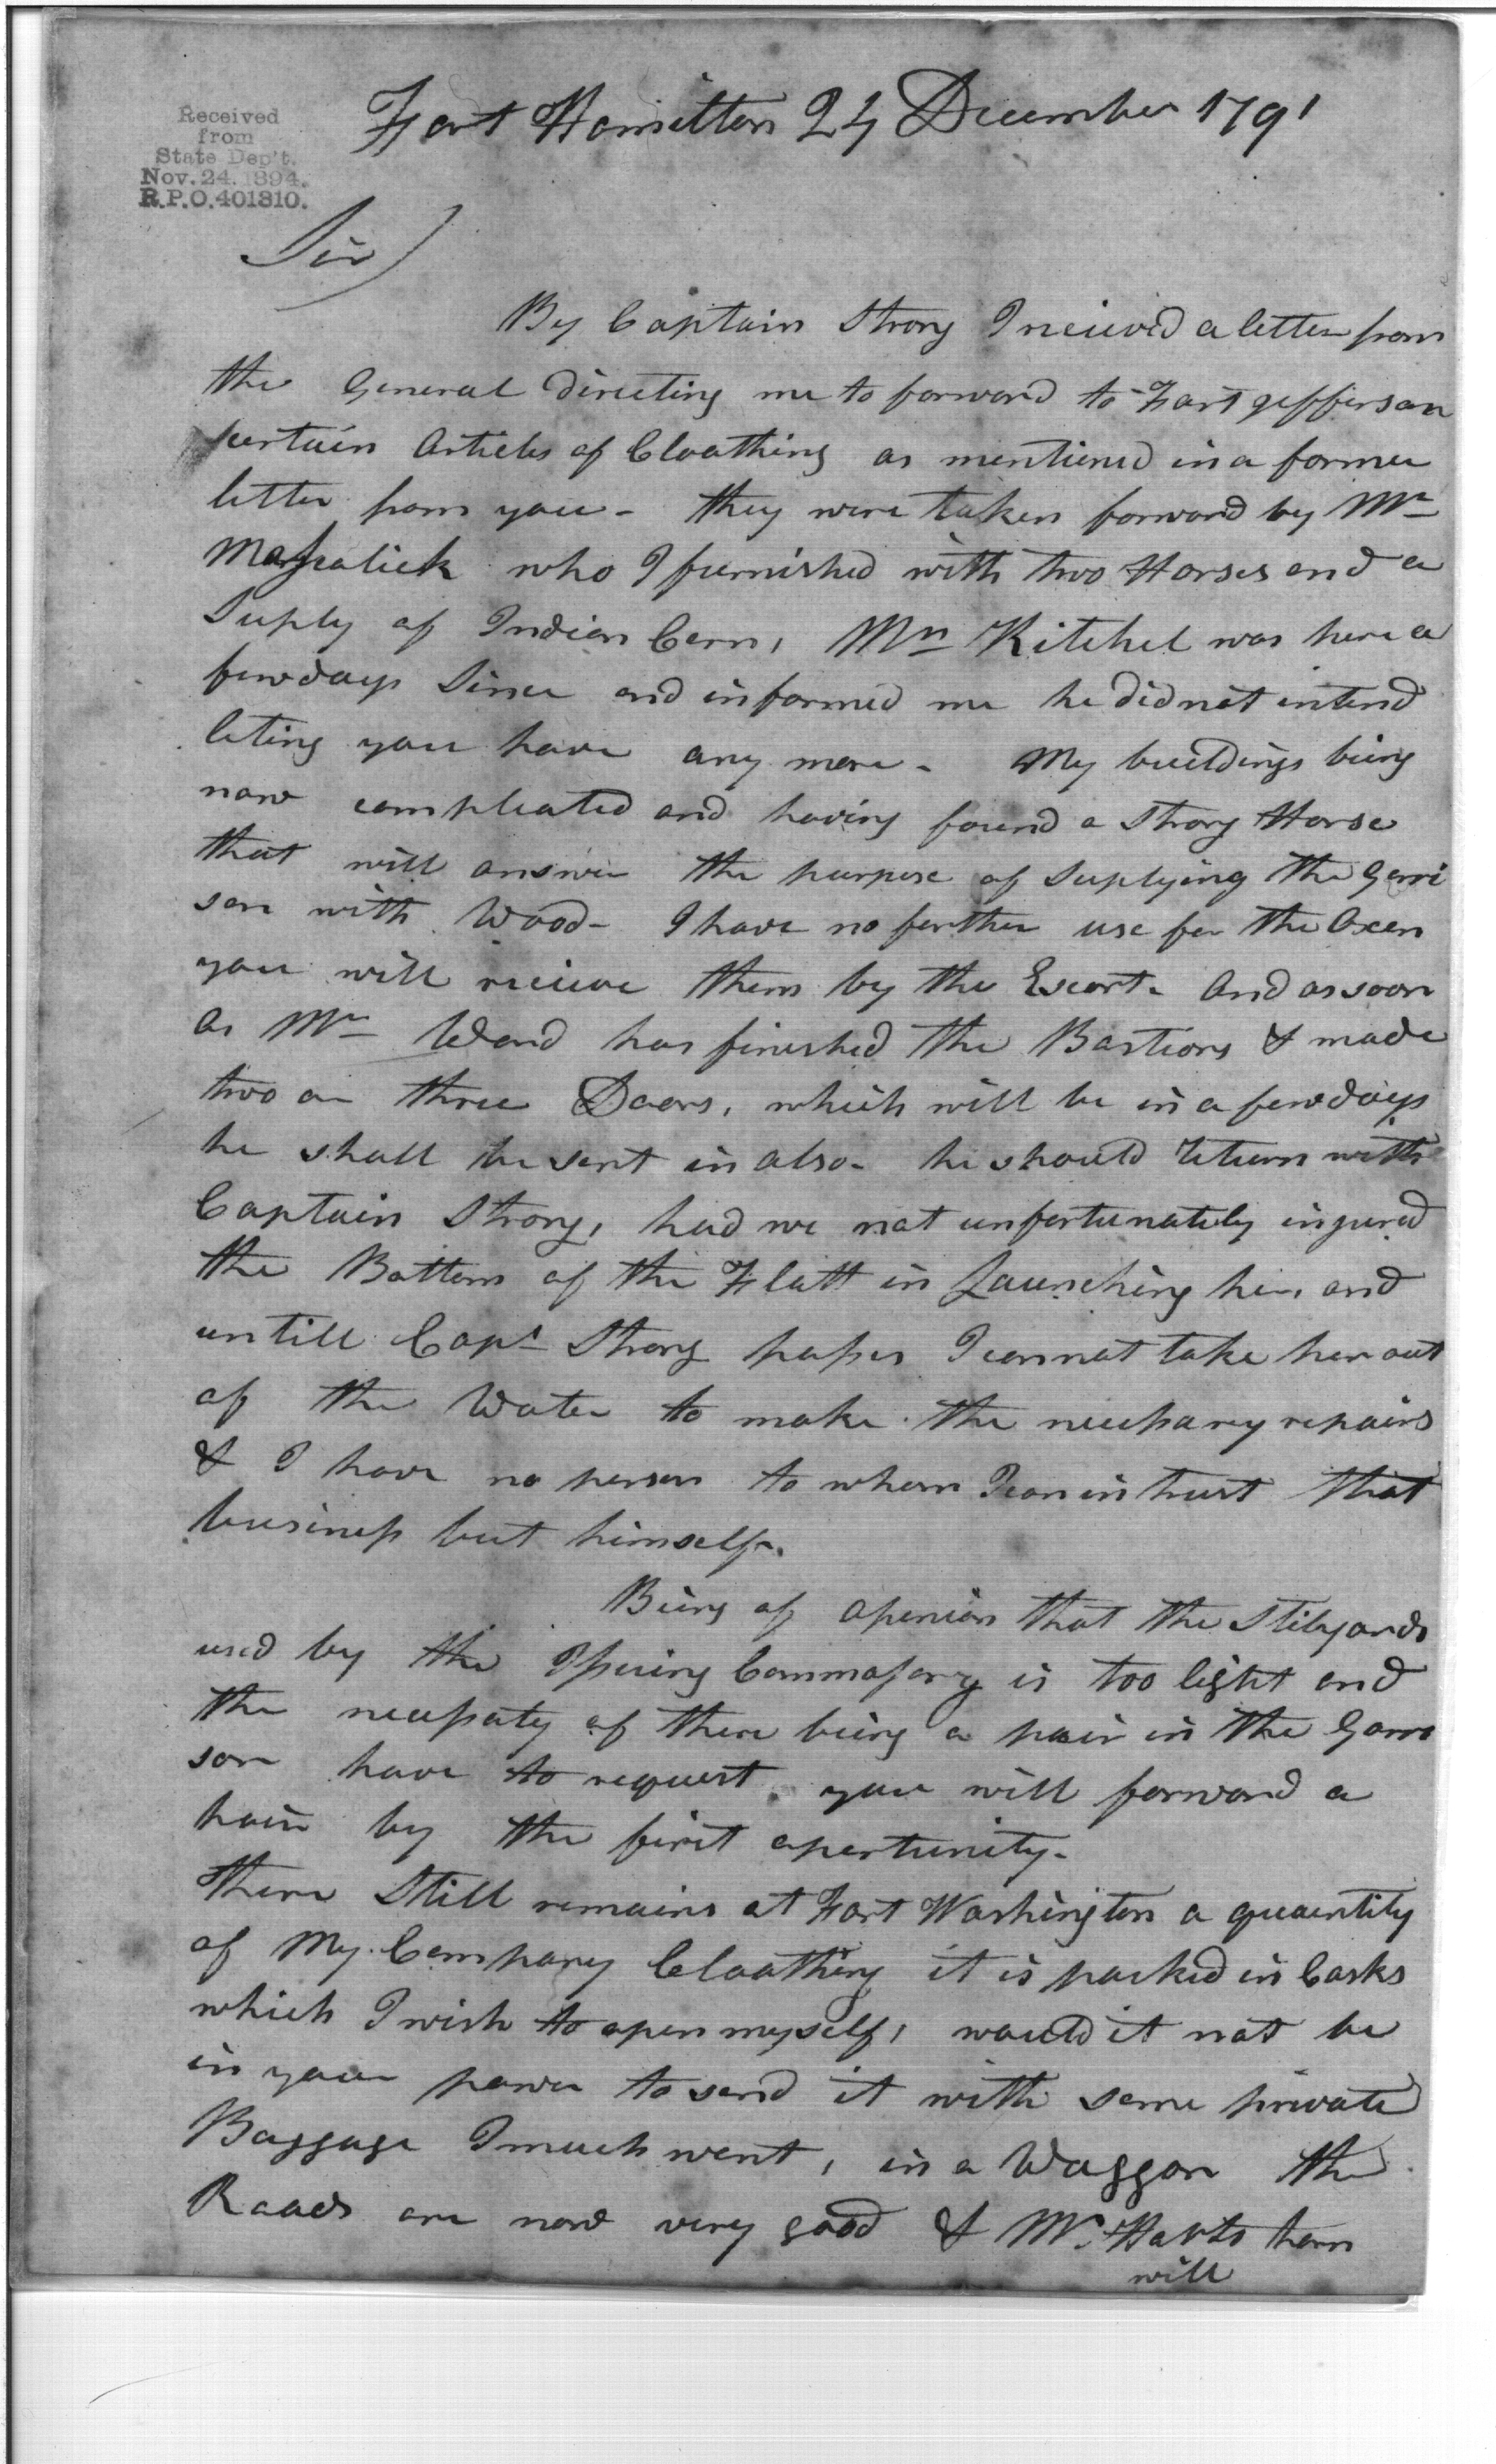 Received
from
State Dep't.
Nov. 24. 1894.
R.P.O. 401810.
Fort Hamilton 24 December 1791
Sir
By Captain Strong I recieved a letter from
the General directing me to forward to Fort Jefferson
certain Articles of Cloathing as mentioned in a former
letter from you - they were taken forward by Mr
who I furnished with two Horses and a
Suply of Indian Corn, Mr Kitchel was here a
few days Since and informed me he did not intend
leting you have any more - My buildings being
now compleated and having found a Strong Horse
that will answer the purpose of Suplying the Garri
son with Wood - I have no further use for the Oxen
you will recieve them by the Escort - And as soon
as Mr Ward has finished the Bastions & made
two or three Doors, which will be in a few days
he shall be sent in also - he should return with
Captain Strong, had we not unfortunately injured
the Bottom of the Flatt in Launching her, and
untill Capt Strong passes I cannot take her out
of the Water to make the necessary repairs
& I have no person to whom I can intrust that
business but himself -
Being of openion that the Stilyards
used by the Issuing Commassary is too light and
the necessaty of there being a pair in the Garri
son have to request you will forward a
pair by the first opertunity -
there Still remains at Fort Washington a quantity
of My Company Cloathing it is packed in Casks
which I wish to open myself, would it not be
in your power to send it with some private
Baggage I much want, in a Waggon the
Roads are now very good & Mr
will